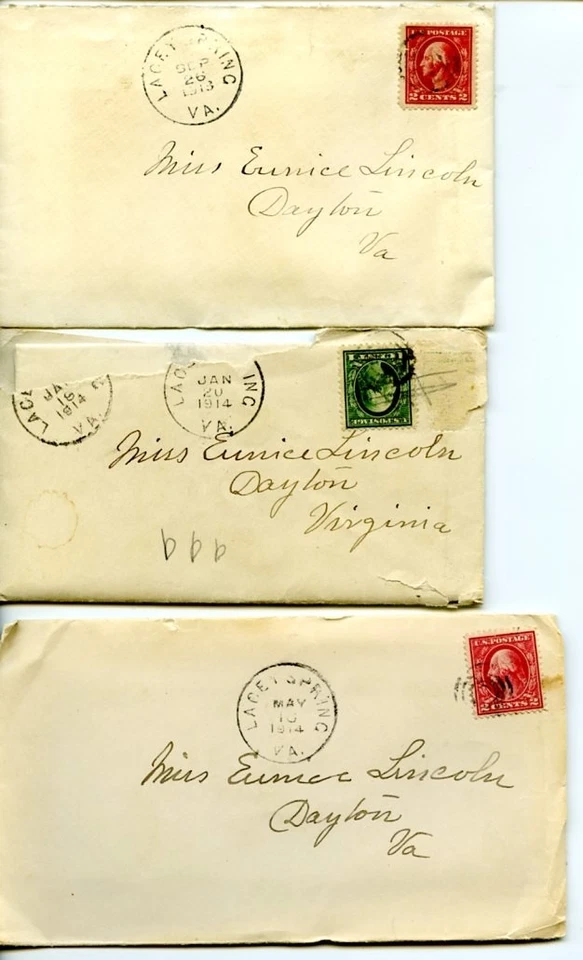 LACEY SPRING
SEP
26
1913
VA.
U.S. POSTAGE
2 CENTS 2
Miss Eunice Lincoln
Dayton
Va
LAC
JA
1914
VA.
LAC ING
JAN
20
1914
VA.
U.S. POSTAGE
1 CENT 1
Miss Eunice Lincoln
Dayton
Virginia
LACEY SPRING
MAY
1914
VA.
U.S. POSTAGE
2 CENTS 2
Miss Eunice Lincoln
Dayton
Va